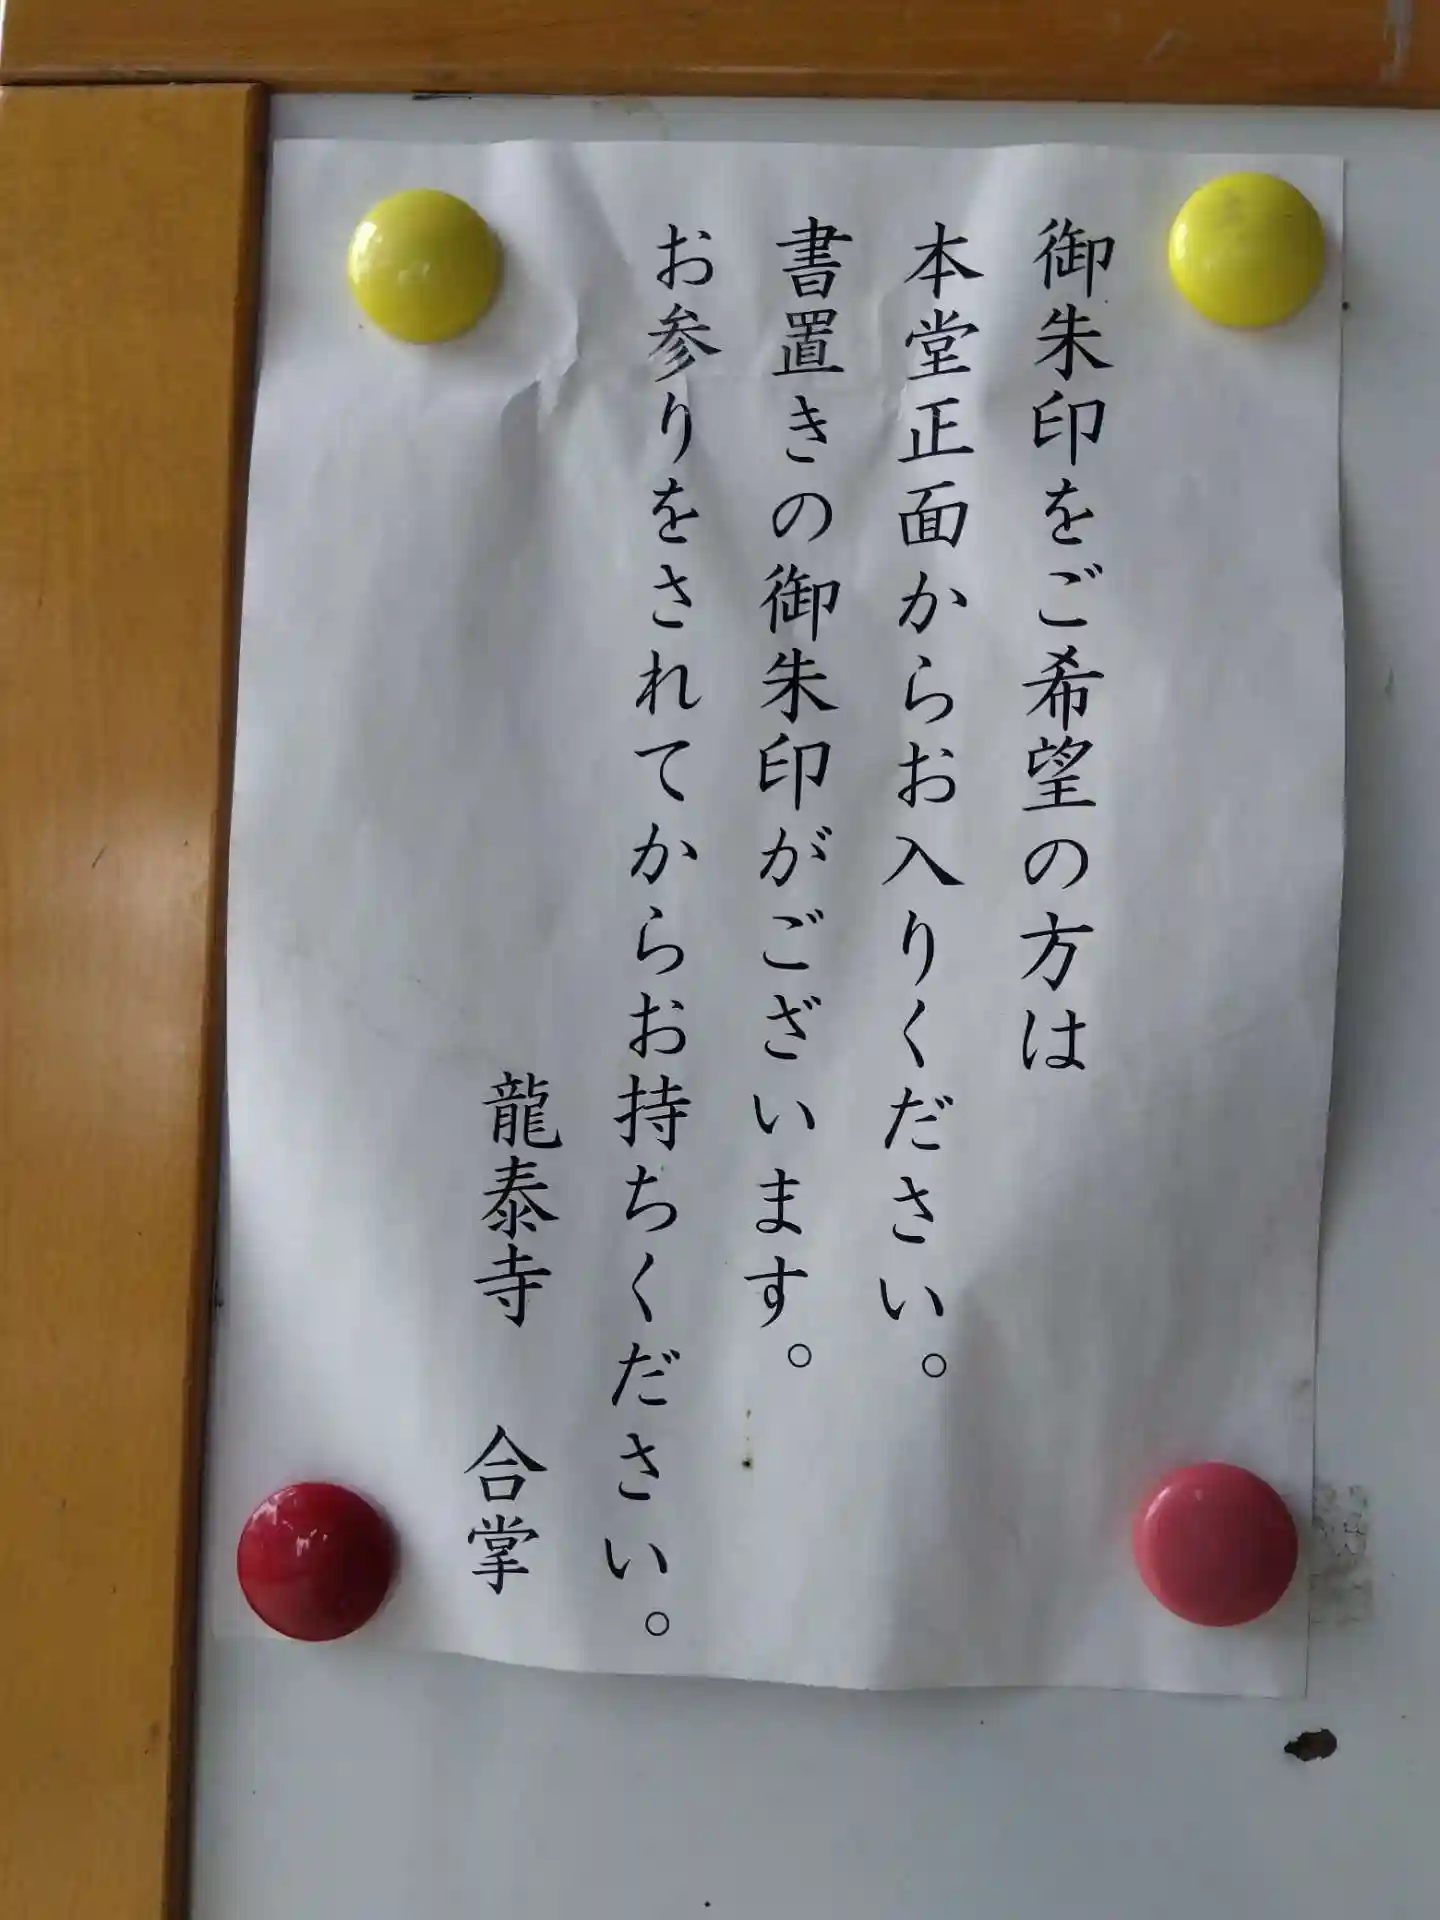 御朱印をご希望の方は
本堂正面からお入りください。
書置きの御朱印がございます。
お参りをされてからお持ちください。
龍泰寺　合掌